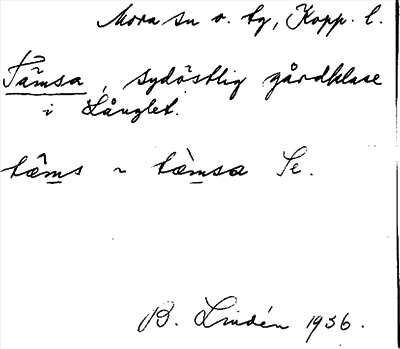 Mora sn o. tg, Kopp. l.
Tämsa, sydöstlig gårdklase
i Långlet.
tæ̂ms ~ tæ̀msa Se.
B. Lindén 1936.